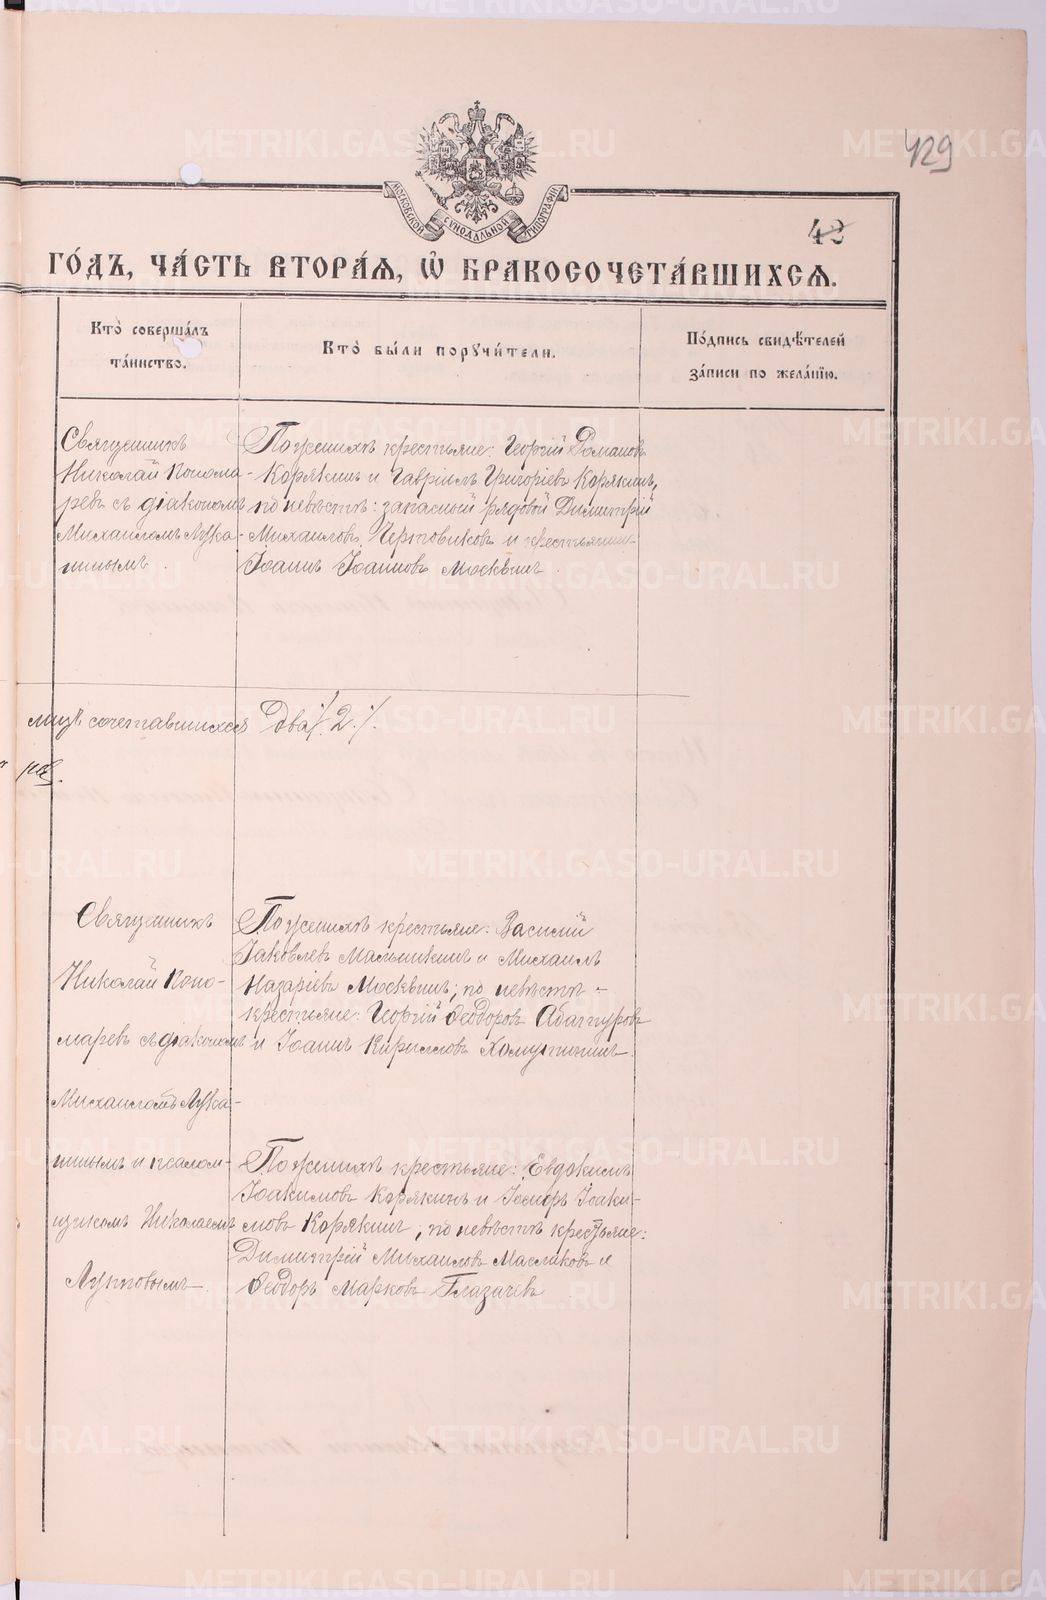 429
МОСКОВСКОЙ СѴНОДАЛЬНОЙ ТИПОГРАФИИ
43
ГО́ДЪ, ЧА́СТЬ ВТОРА́Я, Ѽ БРАКОСОЧЕТА́ВШИХСЯ.
Кто̀ соверша́лъ
та́инство.
Кто̀ бы́ли порꙋчи́тели.
По́дпись свидѣ́телей
за́писи по жела́нїю.
Священникъ
Николай Понома-
ревъ съ діакономъ
Михаиломъ Лука-
нинымъ.
По женихѣ крестьяне: Георгій Романовъ
Корякинъ и Гавріилъ Григоріевъ Корякинъ,
по невѣстѣ: запасный рядовой Димитрій
Михаиловъ Чертовиковъ и крестьянинъ
Іоаннъ Іоанновъ Москвинъ.
лицъ сочетавшихся два /. 2. /.
Священникъ
Николай Поно-
маревъ съ діакономъ
Михаиломъ Лука-
нинымъ и псалом-
щикомъ Николаемъ
Луппovымъ
По женихѣ крестьяне: Василій
Іаковлевъ Мальшкинъ и Михаилъ
Назаріевъ Москвинъ; по невѣстѣ -
крестьяне: Георгій Ѳеодоровъ Абатуровъ
и Іоаннъ Кирилловъ Хомутининъ.
По женихѣ крестьяне: Евдокимъ
Іоакимовъ Корякинъ и Іосифъ Іоаки-
мовъ Корякинъ; по невѣстѣ крестьяне:
Димитрій Михаиловъ Масликовъ и
Ѳеодоръ Марковъ Глазачевъ
METRIKI.GASO-URAL.RU